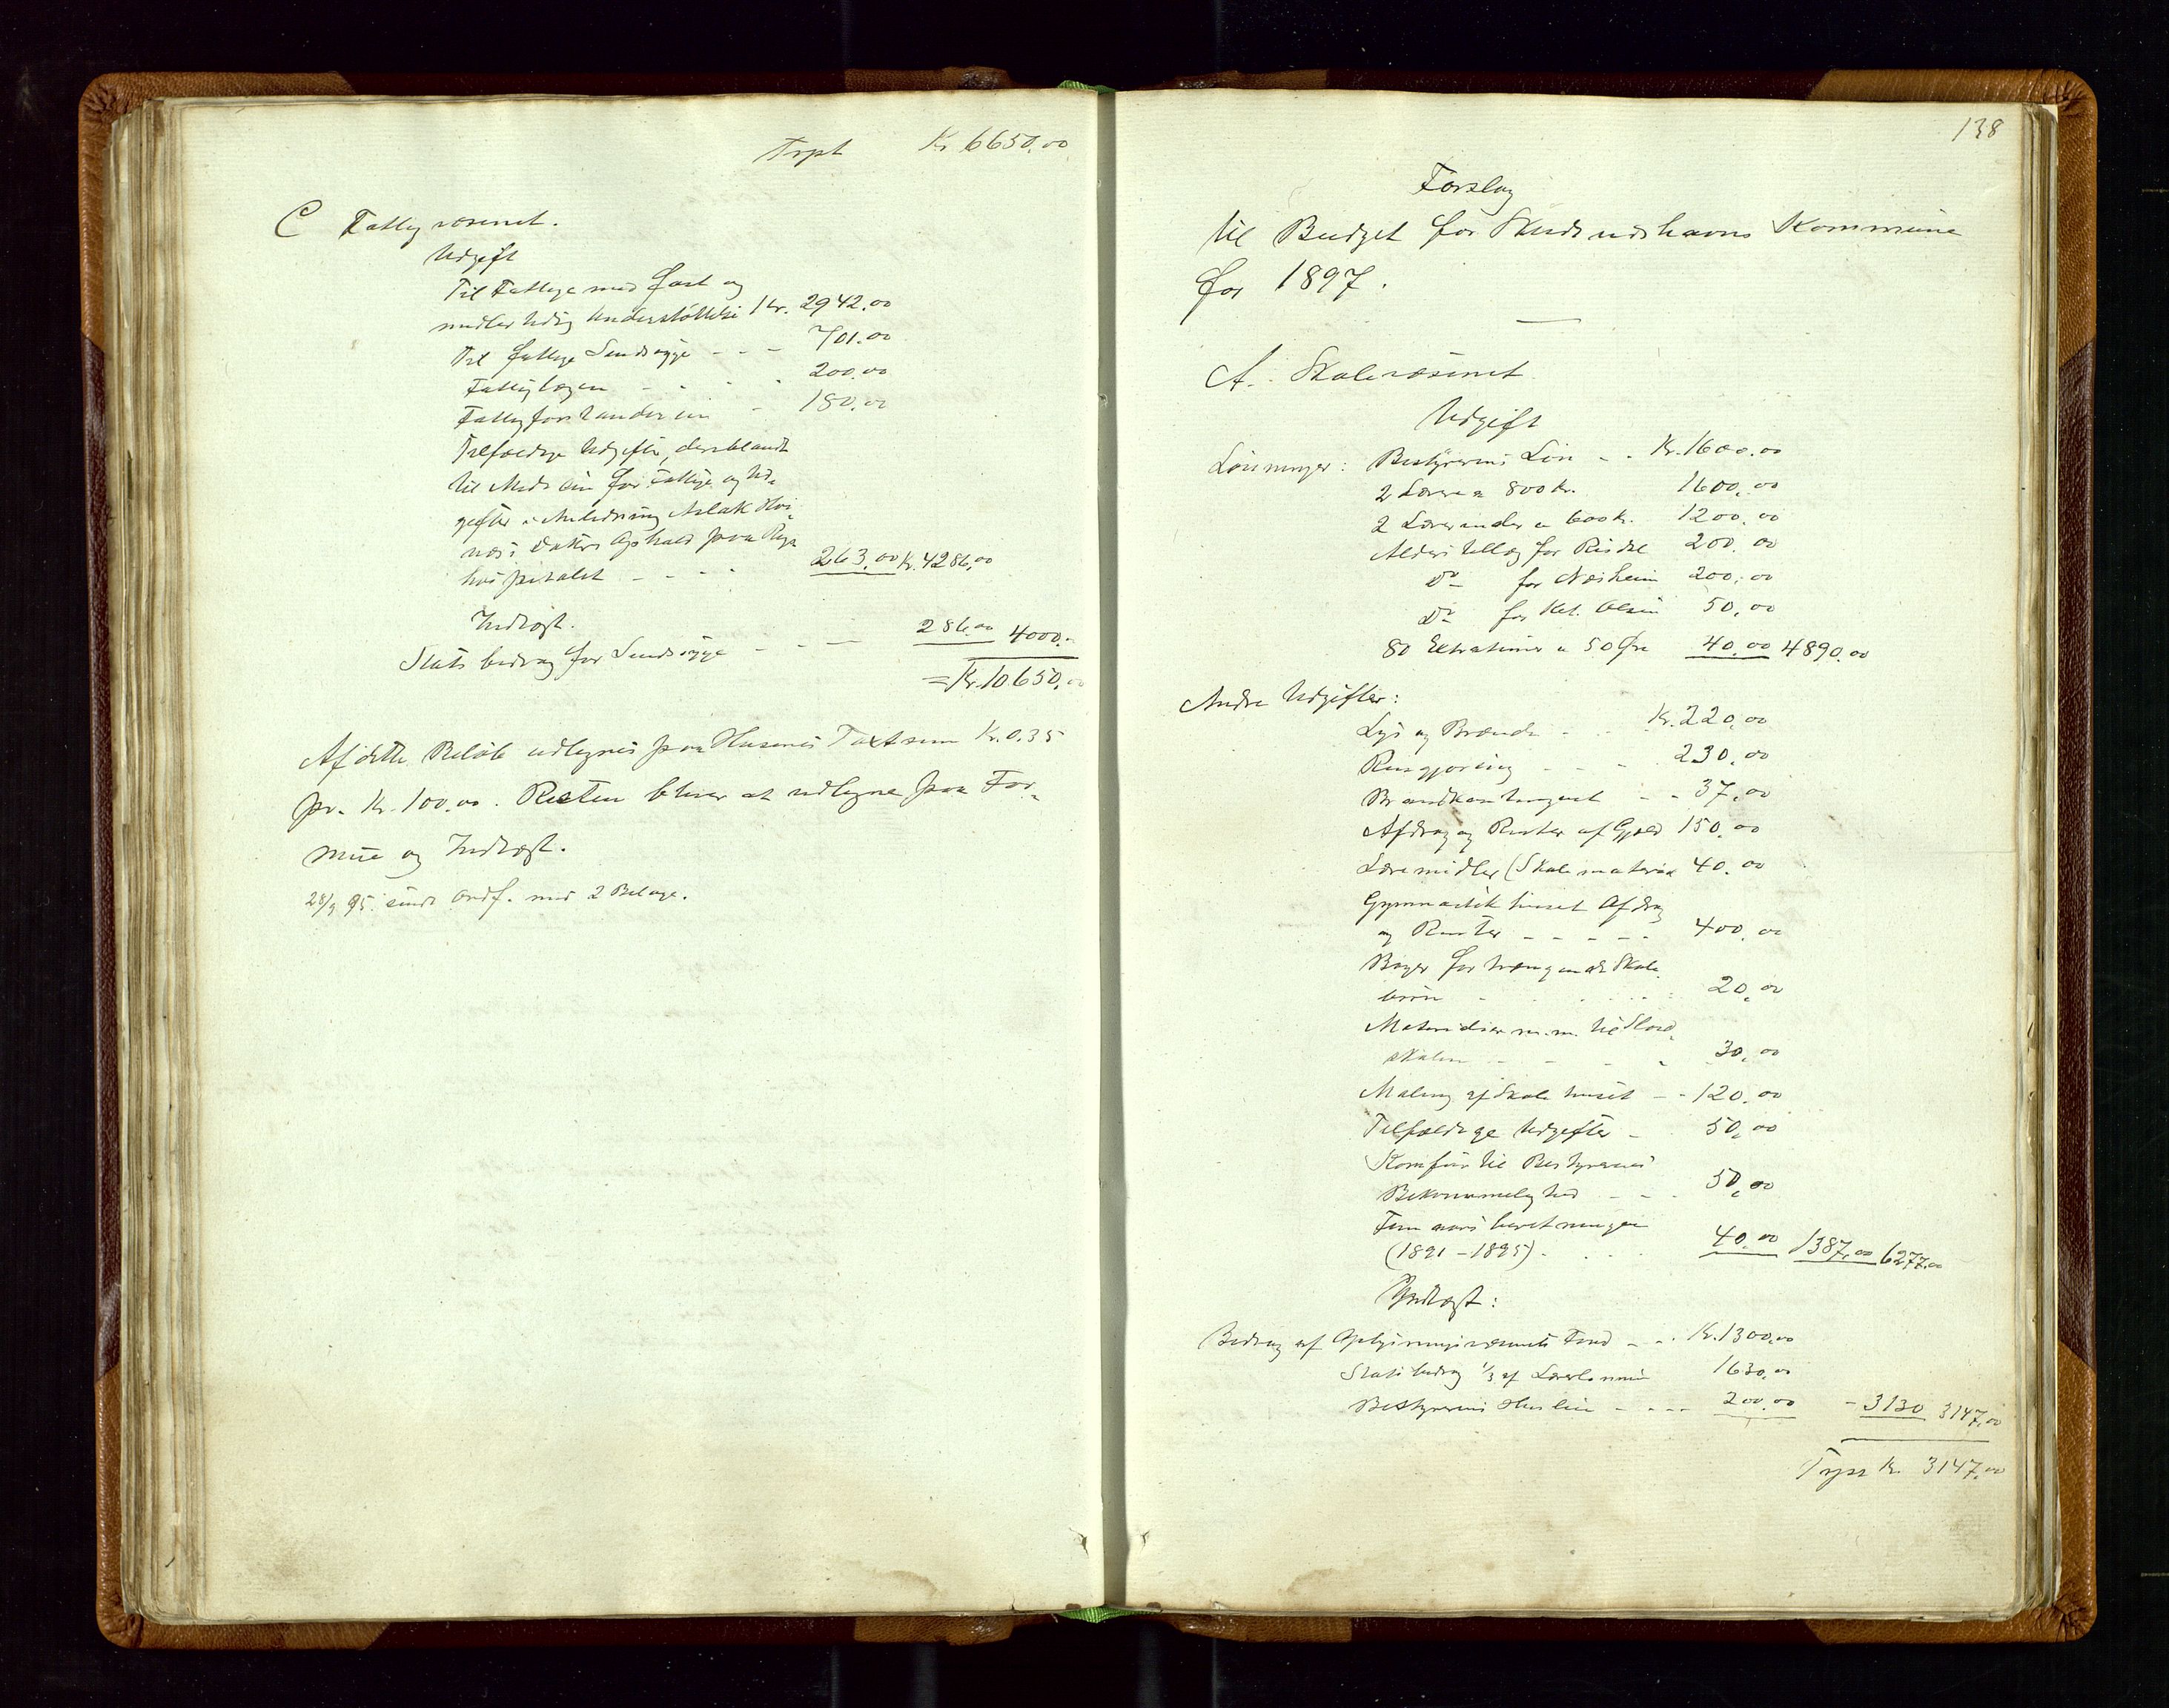 Trpt Kr. 6650,00
C Fattigvæsenet.
Udgift
Til Fattige med fast og
midlertidig Understøttelse Kr. 2942.00
Til fattige Sindssyge - - - 701.00
Fattiglægen - - - - 200.00
Fattigforstanderen - 180.00
Tilfældige Udgifter, deriblandt
til Medicin for Fattige og Ud-
gifter i Anledning Aslak
næs's Datters Ophold paa
hospitalet - - - - 263.00 Kr. 4286,00
Indtægt.
Statsbidrag for Sindssyge - - - 286.00 4000.-
= Kr. 10.650,00
Af dette Beløb udlignes paa Husenes Taxtsum Kr. 0.35
pr. Kr. 100.00. Resten bliver at udligne paa For-
mue og Indtægt.
28/9 95. sendt Ordf. med 2 Bilage.
138
Forslag
til Budget for Skudesneshavns Kommune
for 1897.
A. Skolevæsenet
Udgift
Lønninger: Bestyrerens Løn - - Kr. 1600.00
2 Lærere a 800 kr. 1600,00
2 Lærerinder a 600 kr. 1200,00
Alderstillæg for 200.00
Do for Næsheim 200,00
Do for Olsen 50,00
80 Extratimer a 50 Øre 40.00 4890.00
Andre Udgifter:
Lys og Brænde - - - Kr. 220,00
Rengjøring - - - - 230.00
Brandkontingent - - 37,00
Afdrag og Renter af Gjæld 150.00
Læremidler (Skolemateriel 40.00
Gymnastikhuset Afdrag
og Renter - - - - - 400.00
Bøger for trængende Skole-
børn - - - - - 20,00
Materialier m.m. til Sløid-
skolen - - - - 30,00
Maling af Skolehuset - - 120.00
Tilfældige Udgifter - 50,00
Komfur til Bestyrerens
Bekvemmelighed - - - 50,00
Femaarsberetningen
(1891-1895). - - - 40.00 1387,00 6277.00
Indtægt:
Bidrag af Oplysningsvæsenets Fond - - . Kr. 1300,00
Statsbidrag 1/3 af Lærerlønnen 1630,00
Bestyrerens Husleie - - - - 200.00 - 3130 3147,00
Trpr Kr. 3147,00